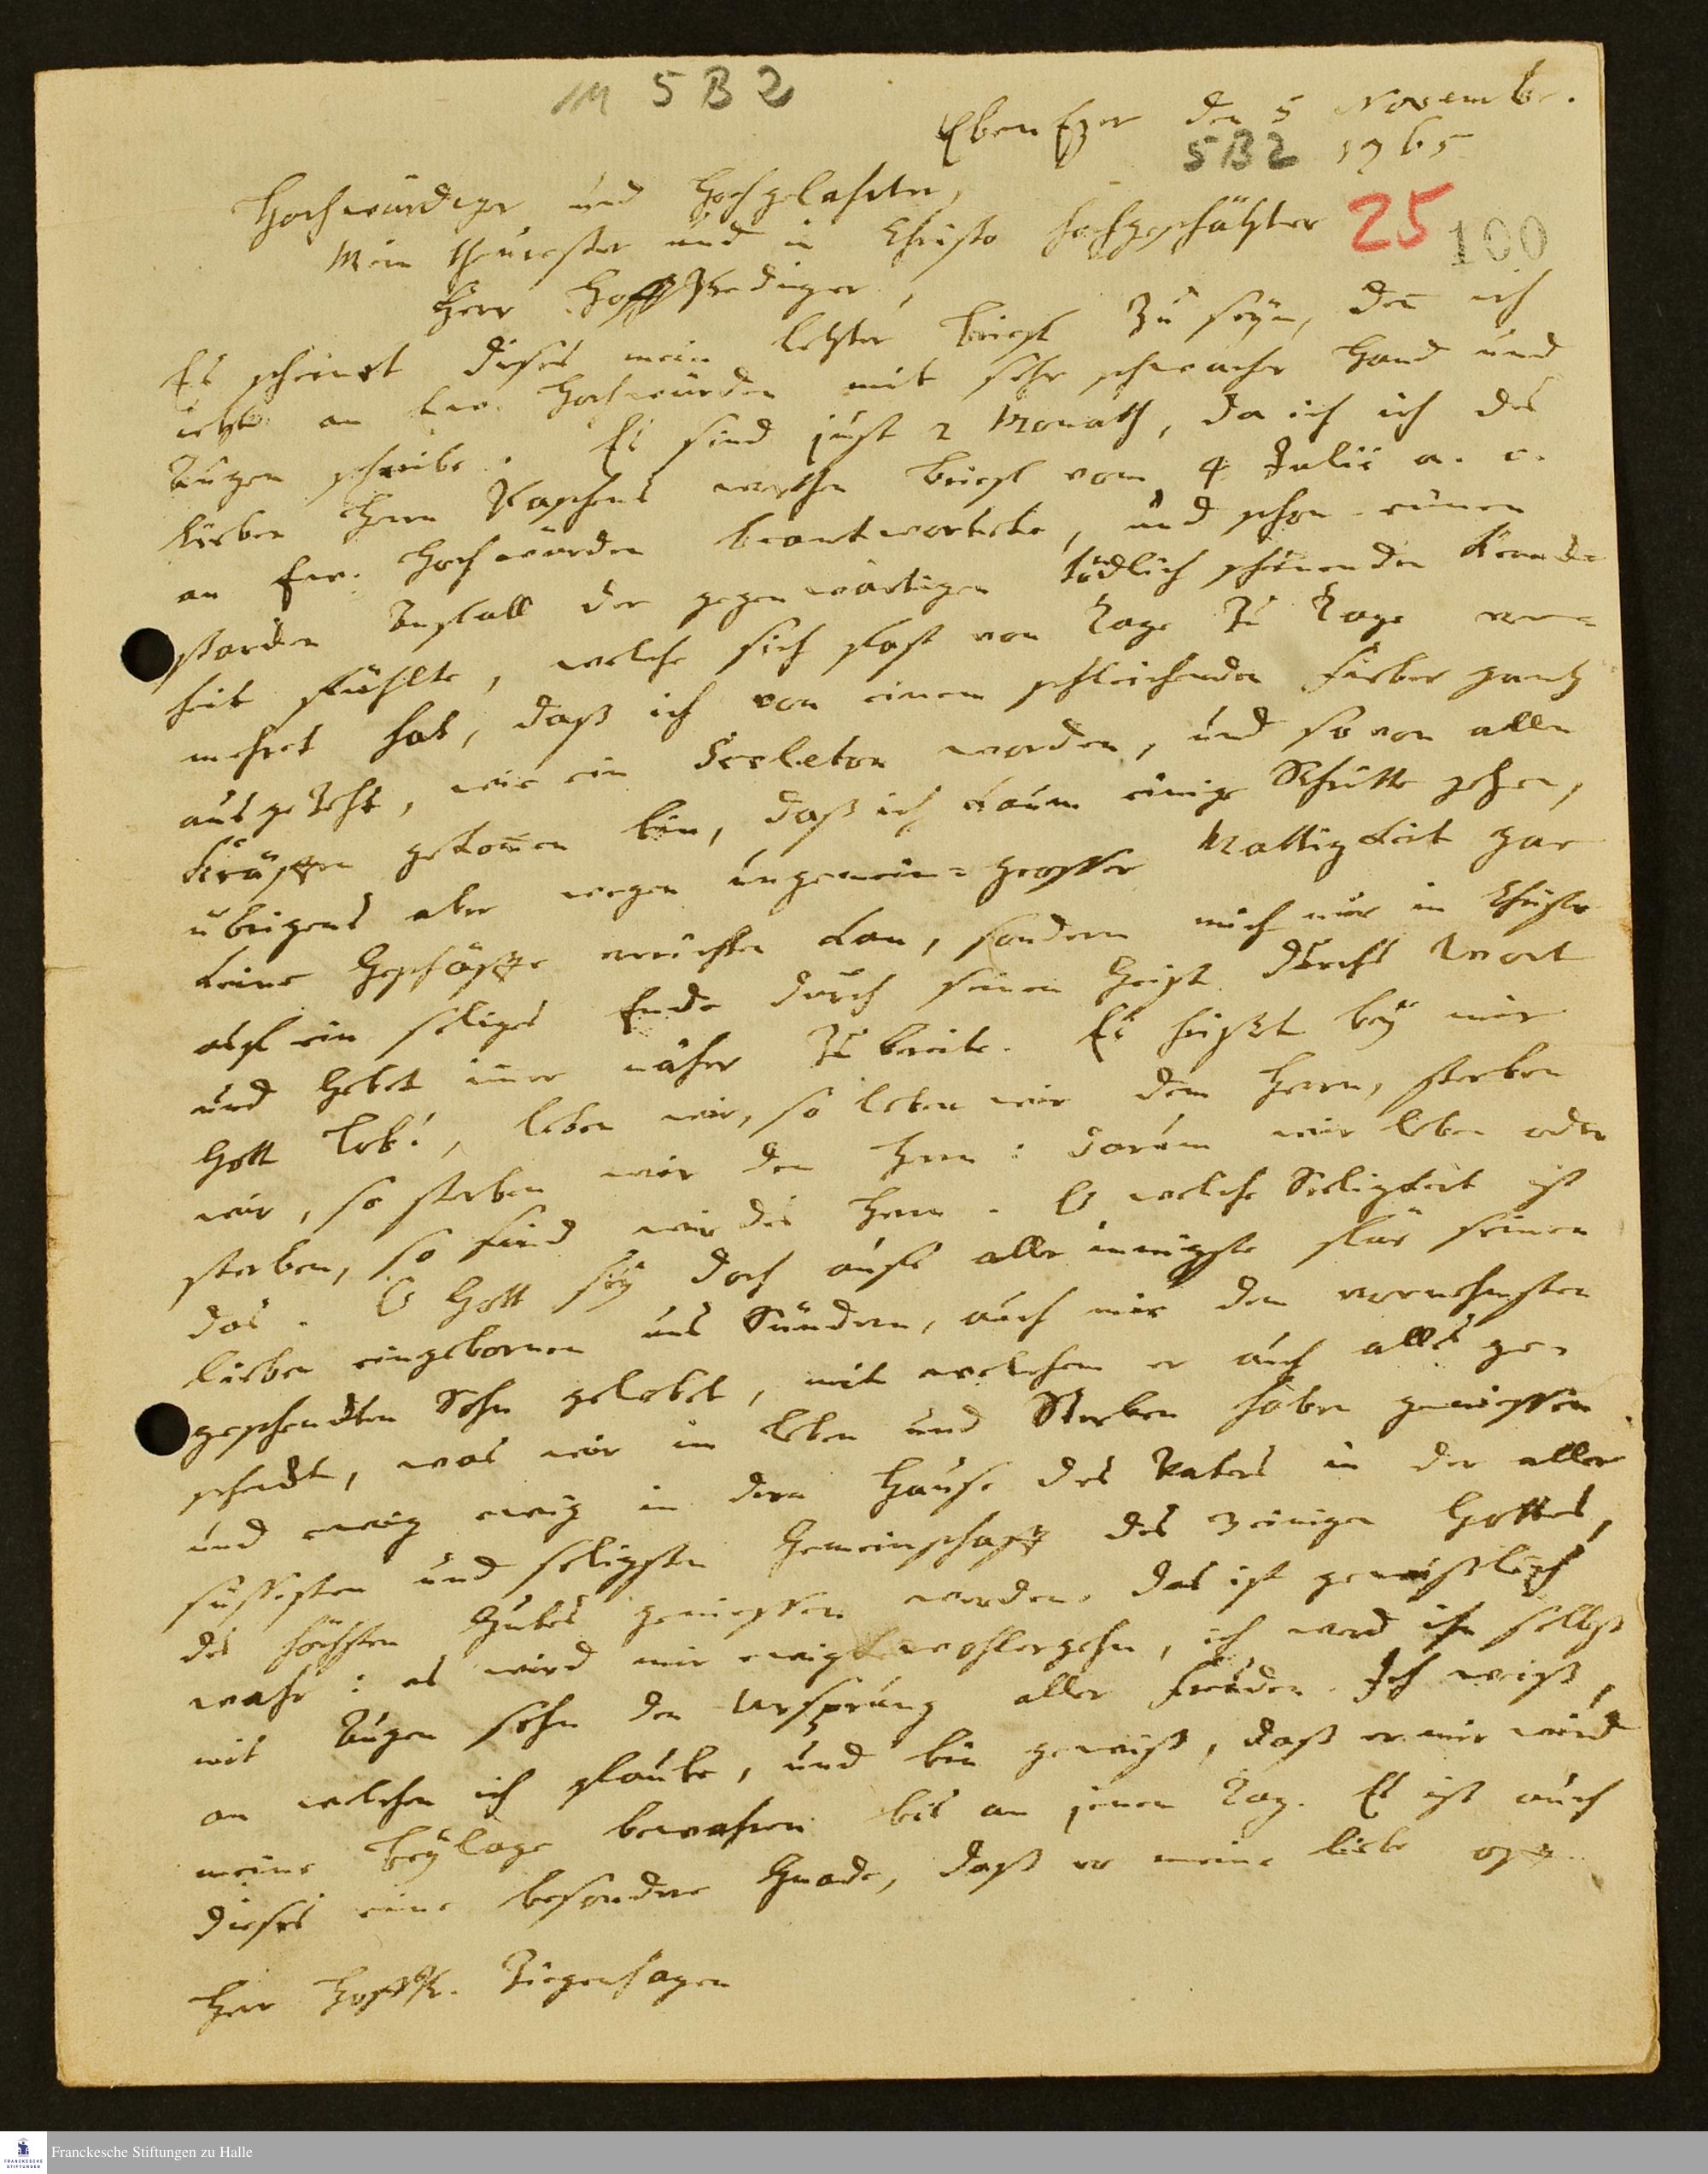 M 5 B 2
EbenEzer den 5 Novembr.
5B2 1765
Hochwürdiger und Hochgelahrter,
Mein theurester und in Christo hochgeschätzter
25
100
Herr HoffPrediger,
Es scheinet dieses mein letzter Brief zu seyn, den ich
ietzt an Ew. Hochwürden mit sehr schwacher Hand und
Augen schreibe. Es sind just 2 Monath, da ich ich des
lieben Herrn Paschens werthen Brief vom 4 Julii a. c.
an Ew. Hochwürden beantwortete, und schon einen
starcken Anfall der gegenwärtigen tödtlich scheinenden Kranck-
heit fühlte, welche sich fast von Tage zu Tage ver=
mehret hat, daß ich von einem schleichenden Fieber gantz
ausgezehrt, wie ein Sceleton worden, und so von allen
Kräfften gekom̄en bin, daß ich kaum einige Schritte gehen,
übrigens aber wegen ungemein=grosser Mattigkeit gar
keine Geschäffte verrichten kan, sondern mich nur in Christo
auf ein seliges Ende durch seinen Geist durchs Wort
und Gebet im̄er näher zubereite. Es heißt bey mir
Gott Lob!, leben wir, so leben wir dem Herrn, sterben
wir, so sterben wir dem Herrn: darum wir leben oder
sterben, so sind wir des Herrn. O welche Seligkeit ist
das. O Gott sey doch aufs aller innigste für seinen
lieben eingebornen uns Sündern, auch mir dem vornehmsten
geschenckten Sohn gelobet, mit welchem er auch alles ge=
schenckt, was wir im Leben und Sterben haben geniessen
und ewig ewig in dem Hause des Vaters in der aller
süssesten und seligsten Gemeinschafft des 3einigen Gottes,
des höchsten Gutes geniessen werden. Das ist gewißlich
wahr: es wird mir ewig wohlergehn, ich werd ihn selbst
mit Augen sehn den Ursprung aller Freuden. Ich weiß,
an welchen ich glaube, und bin gewiß, daß er mir wird
meine Beylage bewahren bis an jenen Tag. Es ist auch
dieses eine besondere Gnade, daß er meine liebe
Herr HoffPr. Ziegenhagen
Franckesche Stiftungen zu Halle